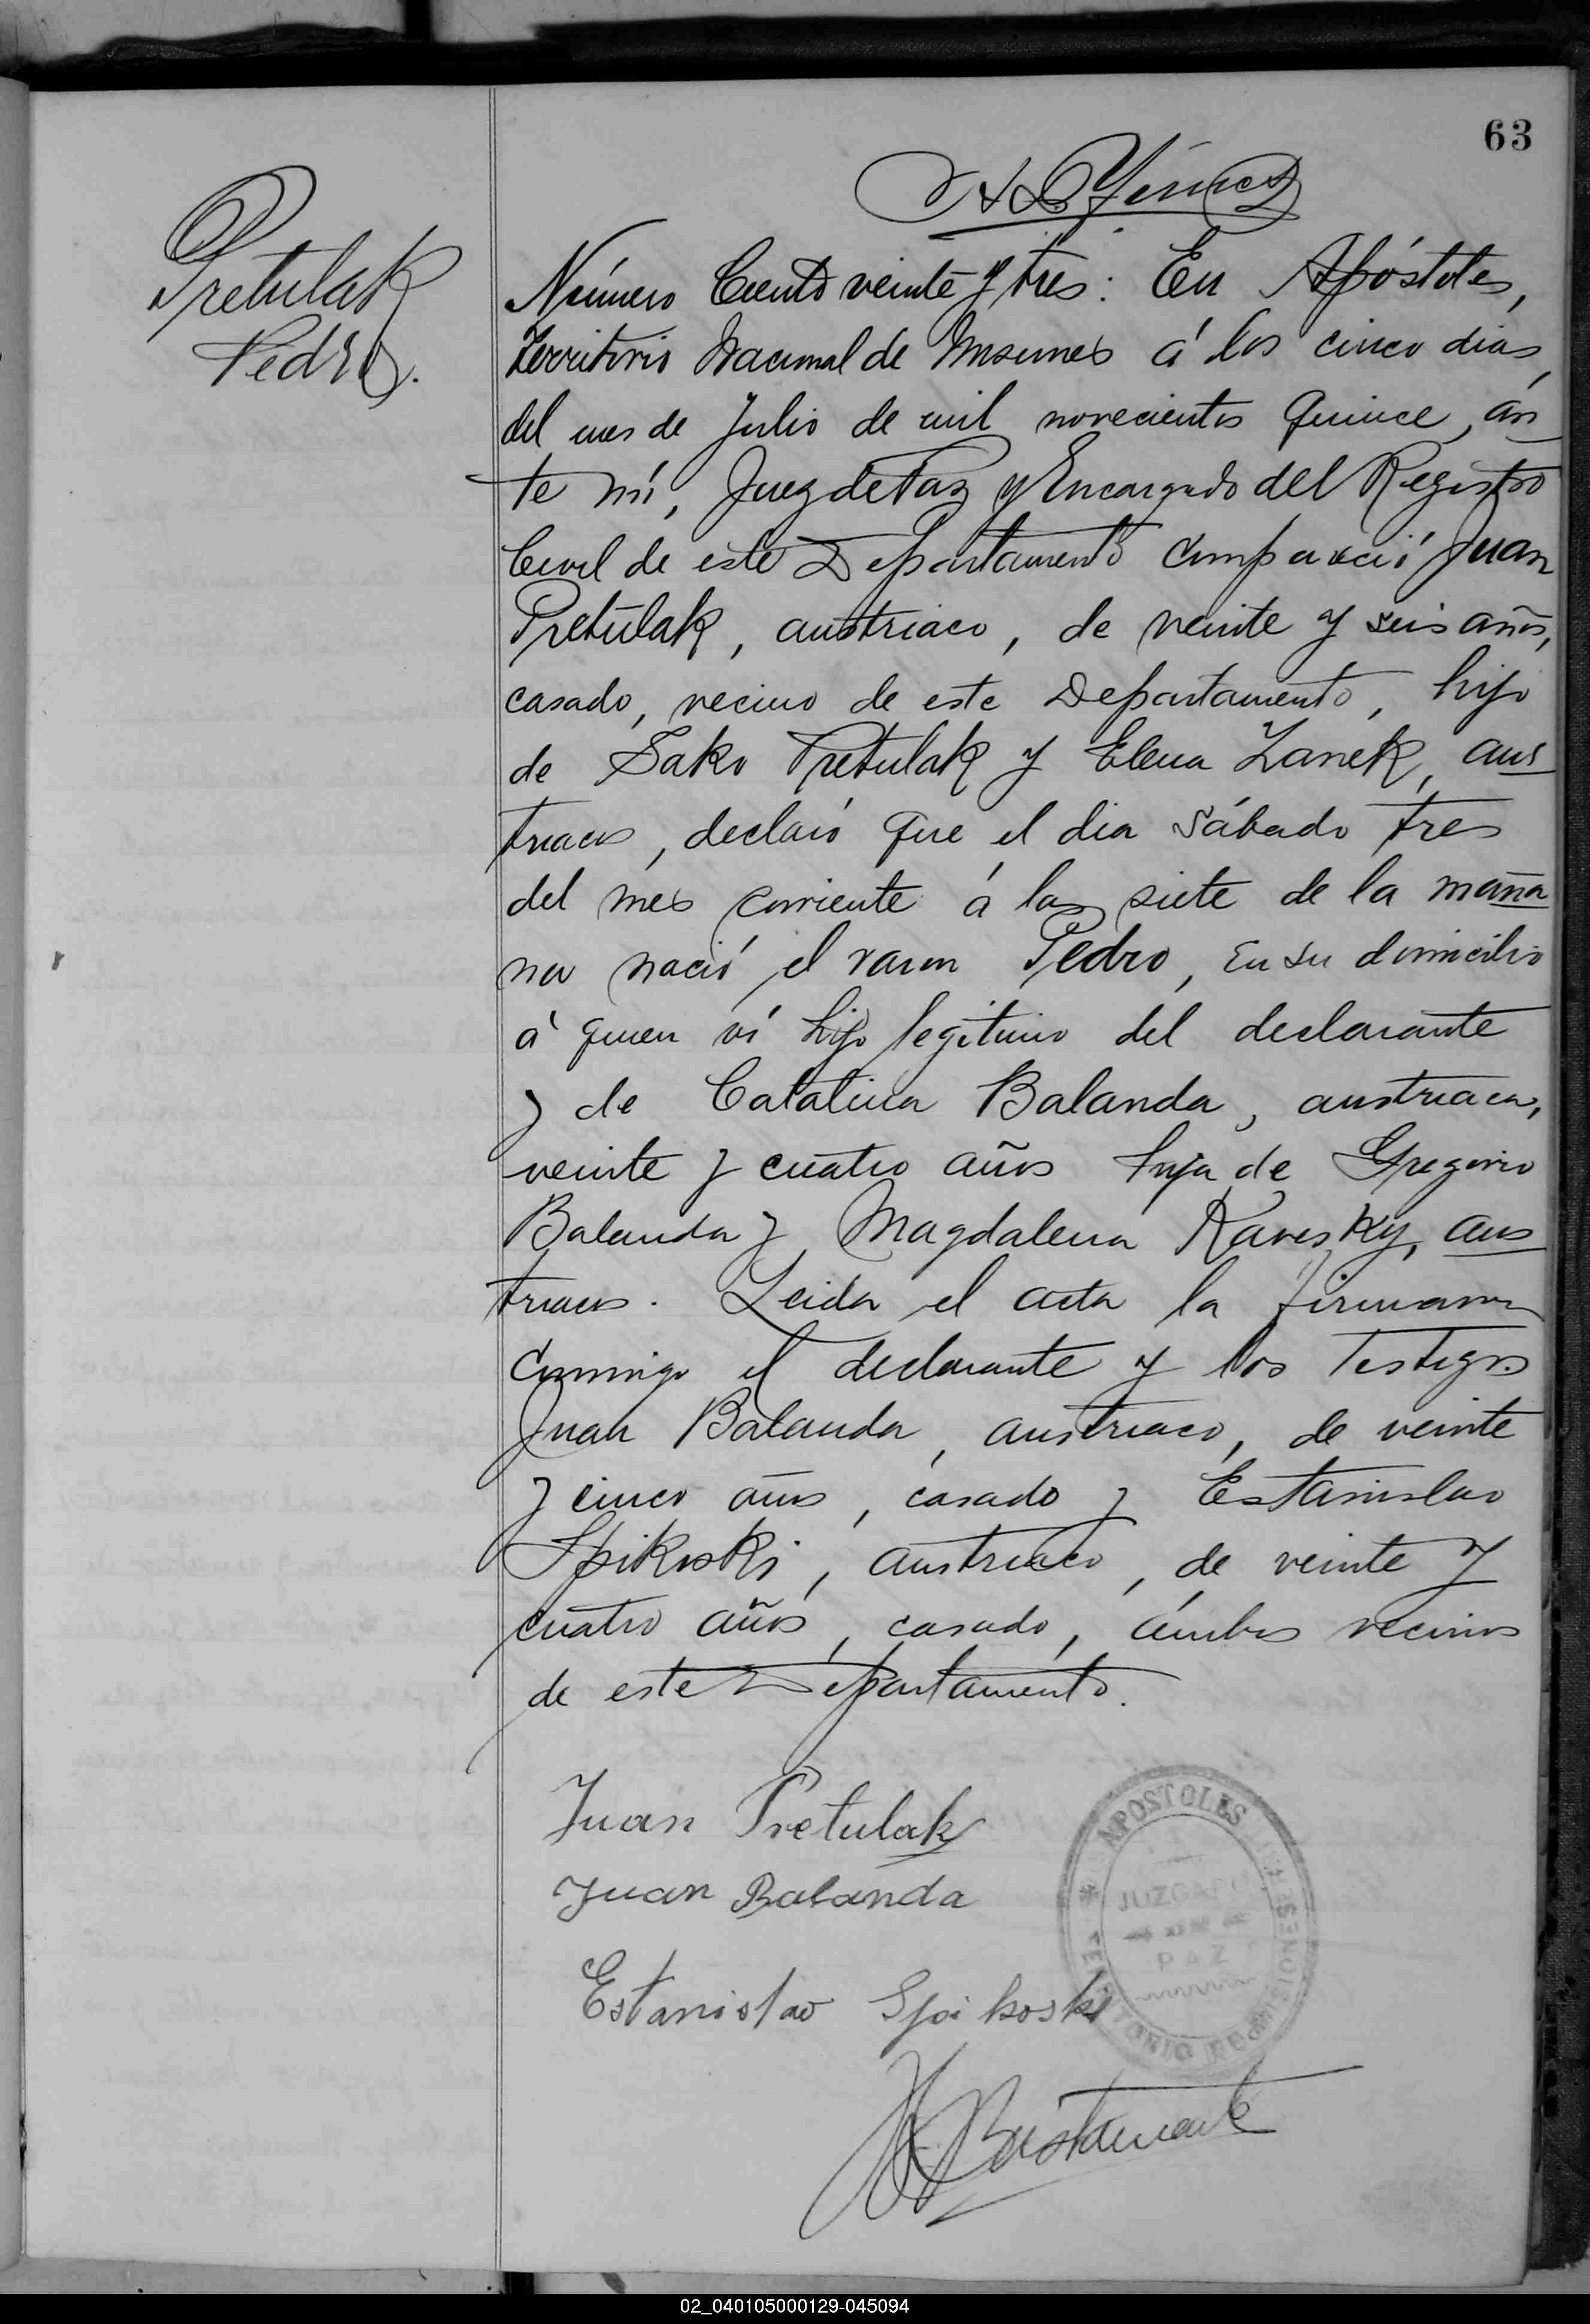 63
Pretulak
Pedro.
Número Ciento veinte y tres: En Apóstoles,
Territorio Nacional de Misiones á los cinco dias,
del mes de Julio de mil novecientos quince, an
te mí, Juez de Paz y Encargado del Registro
Civil de este Departamento compareció Juan
Pretulak, austriaco, de veinte y seis años,
casado, vecino de este Departamento, hijo
de Sako Pretulak y Elena Zanek, aus
triacos, declaró que el dia sábado tres
del mes corriente á las siete de la maña
na nació el varon Pedro, en su domicilio
á quien ví hijo legitimo del declarante
y de Catalina Balanda, austriaca,
veinte y cuatro años hija de Gregorio
Balanda y Magdalena Kavesky, aus
triacos. Leida el acta la firmaron
conmigo el declarante y los testigos
Juan Balanda, austriaco, de veinte
y cinco años, casado y Estanislao
Spikoski, austriaco, de veinte y
cuatro años, casado, ámbos vecinos
de este Departamento.
Juan Pretulak
Juan Balanda
Estanislao Spikoski
APOSTOLES
JUZGADO
DE
PAZ
TERRITORIO DE MISIONES
Bustamante
02_040105000129-045094